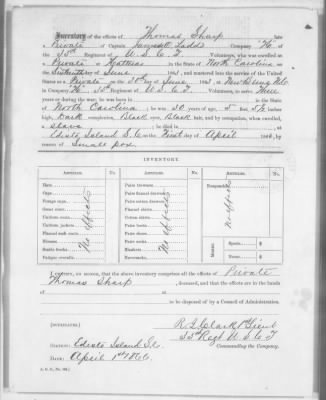 Inventory of the effects of Thomas Sharp late
Private of Captain James C. Ladd's Company "H"
35th Regiment of U.S.C.T. Volunteers, who was enrolled as
Private at in the State of North Carolina on
the day of June 186 , and mustered into the service of the United
States as a Private on the 30th June 186 , at New Berne N.C.
in Company "H" 35th Regiment of U.S.C.T. Volunteers, to serve Three
years or during the war; he was born in in the State
of North Carolina; he was 30 years of age, 5 feet
high, Dark complexion, Black eyes, Black hair, and by occupation, when enrolled,
a Slave; he died in at
Edisto Island S.C. on the First day of April 1866, by
reason of Small pox
INVENTORY.
Hats
Caps
Forage caps
Great coats
Uniform coats
Uniform jackets
Flannel sack coats
Blouses
Stable frocks
Fatigue overalls
No effects
Pairs trowsers
Pairs flannel drawers
Pairs cotton drawers
Flannel shirts
Cotton shirts
Pairs boots
Pairs shoes
Pairs socks
Blankets
Haversacks
No effects
Knapsacks
No effects
MONEY.
Specie, $
Notes, $
I CERTIFY, ON HONOR, that the above inventory comprises all the effects of Private
Thomas Sharp, deceased, and that the effects are in the hands
of at
to be disposed of by a Council of Administration.
[DUPLICATES.]
R. L. Clark 1st Lieut
35 Regt U.S.C.T
Commanding the Company.
STATION: Edisto Island S.C.
DATE: April 1st 1866.